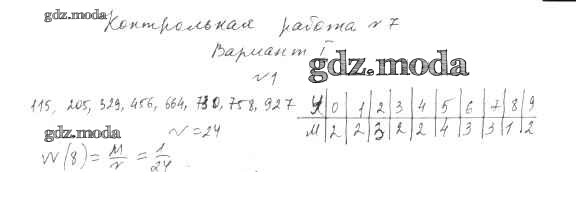 gdz.moda
Контрольная работа №7
Вариант I
gdz.moda
№1
115, 205, 329, 456, 664, 730, 758, 927
X 0 1 2 3 4 5 6 7 8 9
M 2 2 3 2 2 4 3 3 1 2
gdz.moda
n=24
W(8) = M/n = 1/24